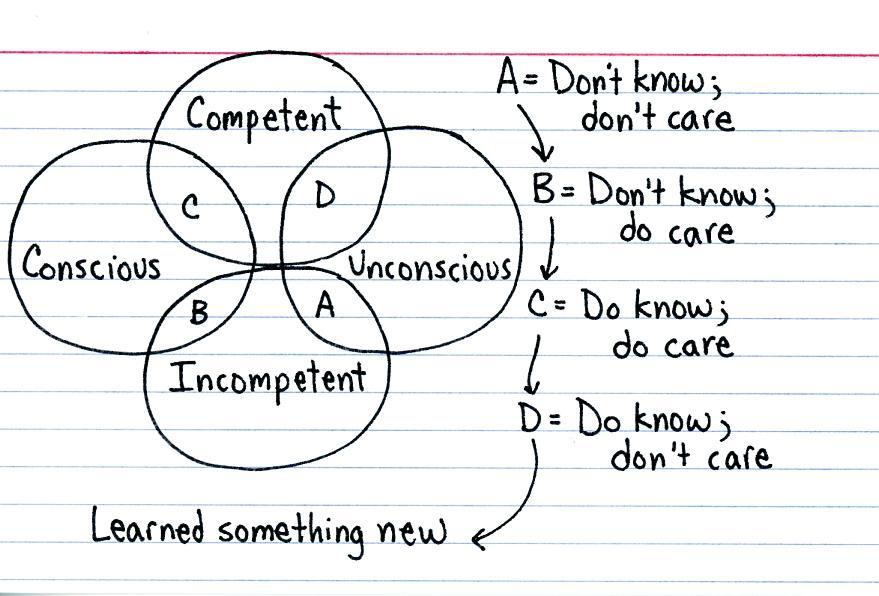 Competent
C
D
Conscious
Unconscious
B
A
Incompetent
A = Don't know;
don't care
B = Don't know;
do care
C = Do know;
do care
D = Do know;
don't care
Learned something new